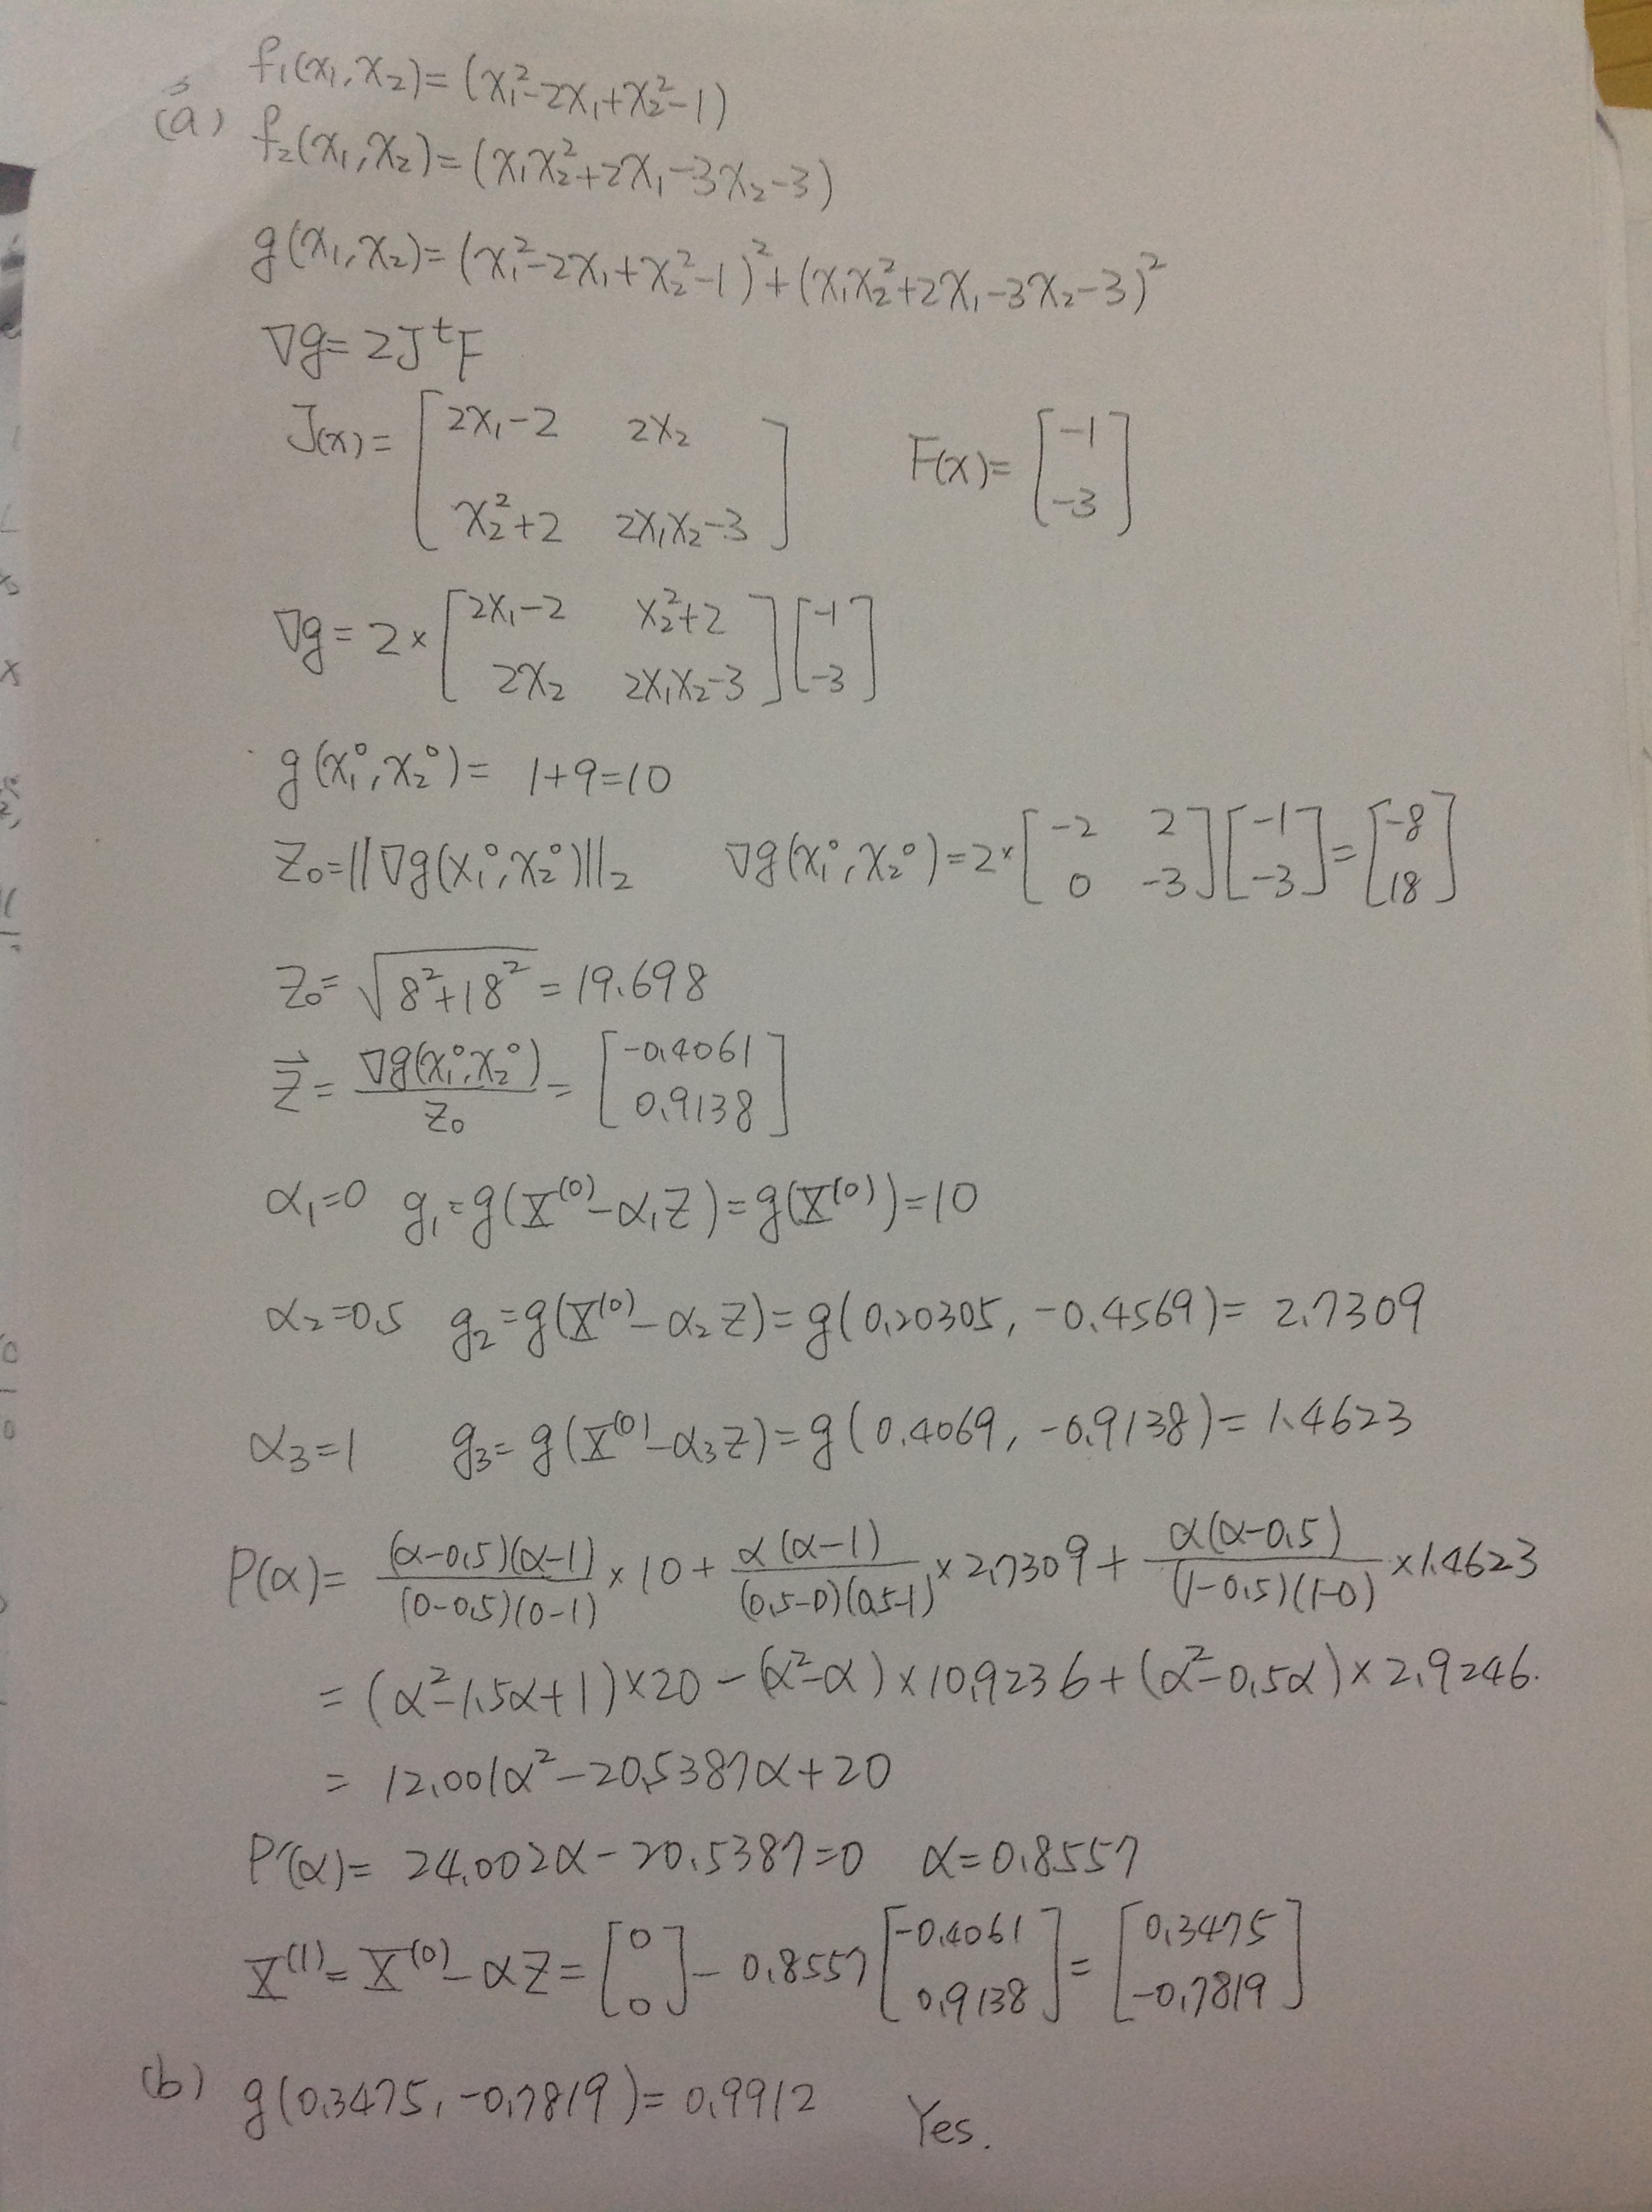 3
f₁(x₁,x₂)=(x₁²-2x₁+x₂²-1)
(a) f₂(x₁,x₂)=(x₁x₂²+2x₁-3x₂-3)
g(x₁,x₂)=(x₁²-2x₁+x₂²-1)²+(x₁x₂²+2x₁-3x₂-3)²
∇g=2JᵗF
J(x)=[2x₁-2 2x₂; x₂²+2 2x₁x₂-3] F(x)=[-1; -3]
∇g=2×[2x₁-2 x₂²+2; 2x₂ 2x₁x₂-3][-1; -3]
g(x₁⁰,x₂⁰)= 1+9=10
Z₀=||∇g(x₁⁰,x₂⁰)||₂ ∇g(x₁⁰,x₂⁰)=2×[-2 2; 0 -3][-1; -3]=[-8; 18]
Z₀=√(8²+18²)=19.698
Z⃗=∇g(x₁⁰,x₂⁰)/Z₀=[-0.4061; 0.9138]
α₁=0 g₁=g(X⁽⁰⁾-α₁Z)=g(X⁽⁰⁾)=10
α₂=0.5 g₂=g(X⁽⁰⁾-α₂Z)=g(0.20305, -0.4569)= 2.7309
α₃=1 g₃=g(X⁽⁰⁾-α₃Z)=g(0.4069, -0.9138)=1.4623
P(α)=(α-0.5)(α-1)/(0-0.5)(0-1)×10+α(α-1)/(0.5-0)(0.5-1)×2.7309+α(α-0.5)/(1-0.5)(1-0)×1.4623
=(α²-1.5α+1)×20-(α²-α)×10.9236+(α²-0.5α)×2.9246.
= 12.001α²-20.5387α+20
P'(α)= 24.002α-20.5387=0 α=0.8557
X⁽¹⁾=X⁽⁰⁾-αZ=[0; 0]-0.8557[-0.4061; 0.9138]=[0.3475; -0.7819]
(b) g(0.3475, -0.7819)=0.9912 Yes.